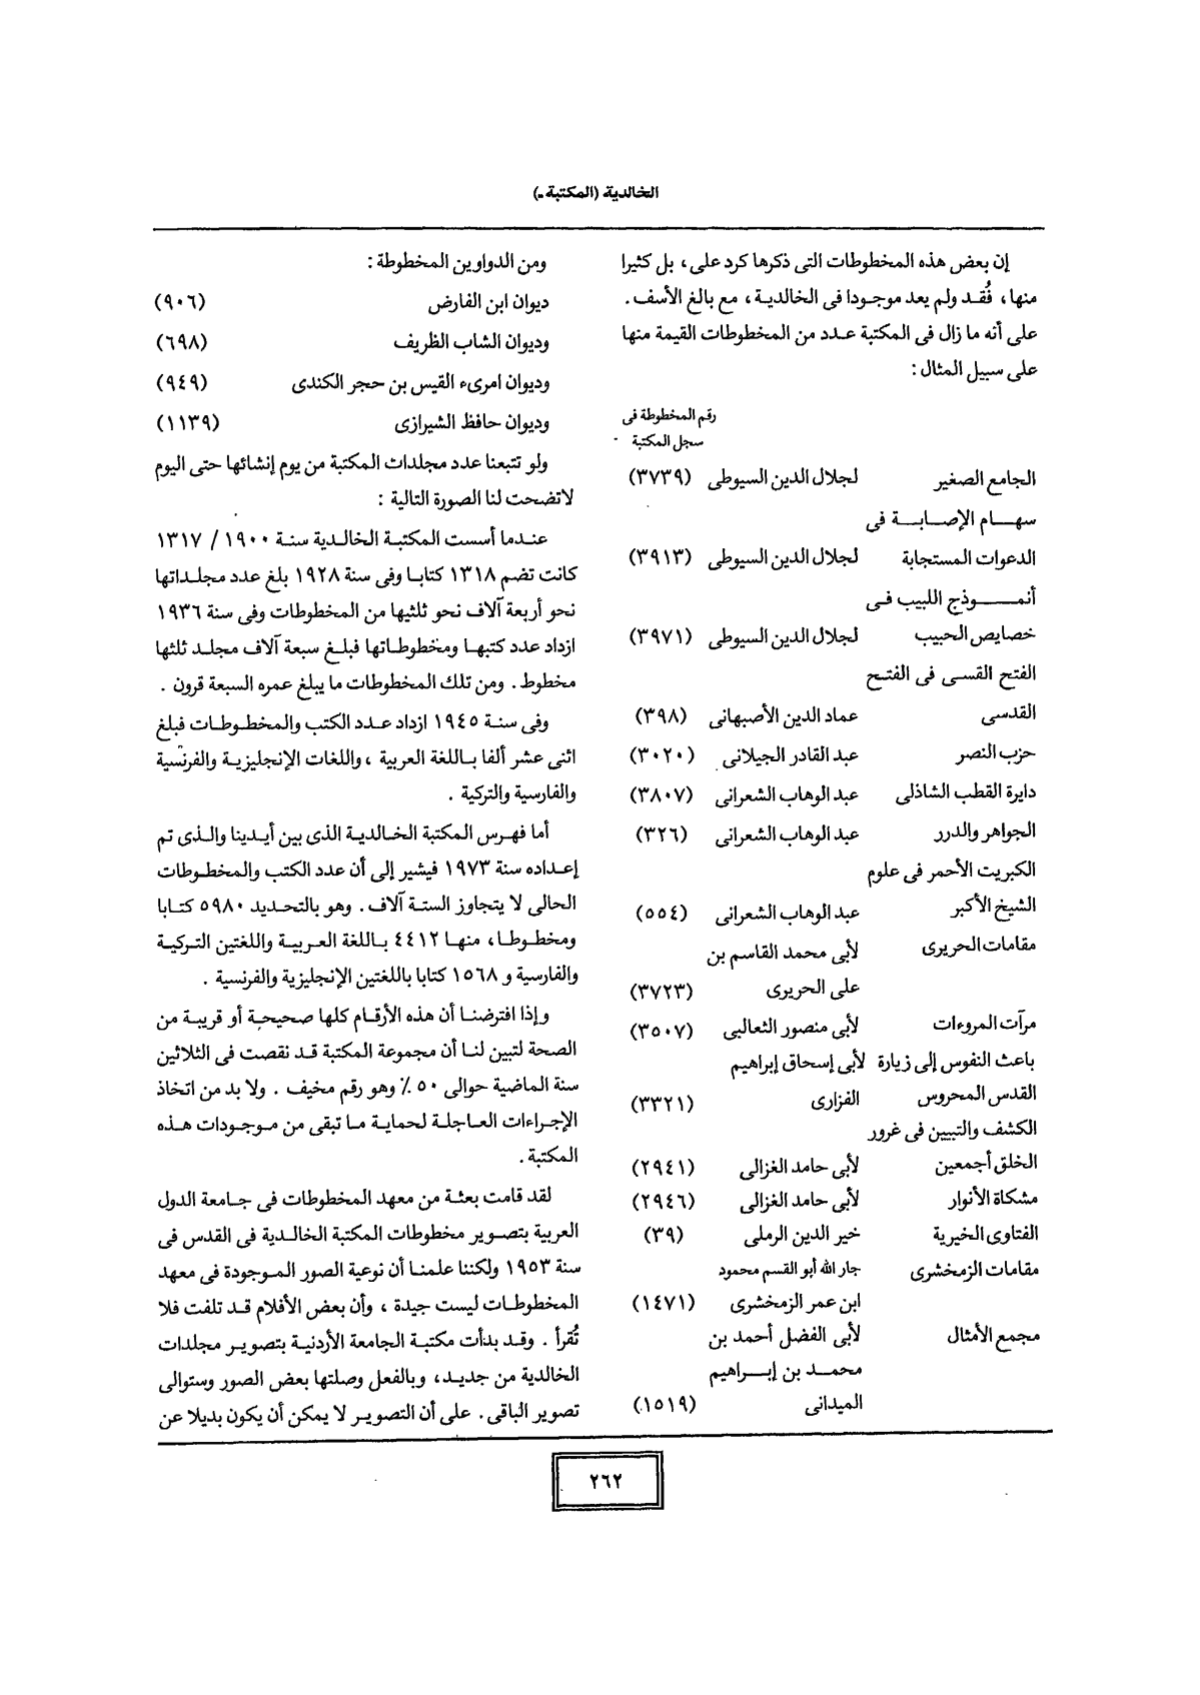 الخالدية (المكتبة ـ)
إن بعض هذه المخطوطات التى ذكرها كرد على، بل كثيرا
منها، فُقد ولم يعد موجودا فى الخالدية، مع بالغ الأسف.
على أنه ما زال فى المكتبة عدد من المخطوطات القيمة منها
على سبيل المثال:
رقم المخطوطة فى
سجل المكتبة
الجامع الصغير لجلال الدين السيوطى (٣٧٣٩)
سهام الإصابة فى
الدعوات المستجابة لجلال الدين السيوطى (٣٩١٣)
أنموذج اللبيب فى
خصايص الحبيب لجلال الدين السيوطى (٣٩٧١)
الفتح القسى فى الفتح
القدسى عماد الدين الأصبهانى (٣٩٨)
حزب النصر عبد القادر الجيلانى (٣٠٢٠)
دايرة القطب الشاذلى عبد الوهاب الشعرانى (٣٨٠٧)
الجواهر والدرر عبد الوهاب الشعرانى (٣٢٦)
الكبريت الأحمر فى علوم
الشيخ الأكبر عبد الوهاب الشعرانى (٥٥٤)
مقامات الحريرى لأبى محمد القاسم بن
على الحريرى (٣٧٢٣)
مرآت المروءات لأبى منصور الثعالبى (٣٥٠٧)
باعث النفوس إلى زيارة لأبى إسحاق إبراهيم
القدس المحروس الفزارى (٣٣٢١)
الكشف والتبيين فى غرور
الخلق أجمعين لأبى حامد الغزالى (٢٩٤١)
مشكاة الأنوار لأبى حامد الغزالى (٢٩٤٦)
الفتاوى الخيرية خير الدين الرملى (٣٩)
مقامات الزمخشرى جار الله أبو القسم محمود
ابن عمر الزمخشرى (١٤٧١)
مجمع الأمثال لأبى الفضل أحمد بن
محمد بن إبراهيم
الميدانى (١٥١٩)
ومن الدواوين المخطوطة:
ديوان ابن الفارض (٩٠٦)
وديوان الشاب الظريف (٦٩٨)
وديوان امرىء القيس بن حجر الكندى (٩٤٩)
وديوان حافظ الشيرازى (١١٣٩)
ولو تتبعنا عدد مجلدات المكتبة من يوم إنشائها حتى اليوم
لاتضحت لنا الصورة التالية:
عندما أسست المكتبة الخالدية سنة ١٩٠٠ / ١٣١٧
كانت تضم ١٣١٨ كتابا وفى سنة ١٩٢٨ بلغ عدد مجلداتها
نحو أربعة آلاف نحو ثلثيها من المخطوطات وفى سنة ١٩٣٦
ازداد عدد كتبها ومخطوطاتها فبلغ سبعة آلاف مجلد ثلثها
مخطوط. ومن تلك المخطوطات ما يبلغ عمره السبعة قرون.
وفى سنة ١٩٤٥ ازداد عدد الكتب والمخطوطات فبلغ
اثنى عشر ألفا باللغة العربية، واللغات الإنجليزية والفرنسية
والفارسية والتركية.
أما فهرس المكتبة الخالدية الذى بين أيدينا والذى تم
إعداده سنة ١٩٧٣ فيشير إلى أن عدد الكتب والمخطوطات
الحالى لا يتجاوز الستة آلاف. وهو بالتحديد ٥٩٨٠ كتابا
ومخطوطا، منها ٤٤١٢ باللغة العربية واللغتين التركية
والفارسية و ١٥٦٨ كتابا باللغتين الإنجليزية والفرنسية.
وإذا افترضنا أن هذه الأرقام كلها صحيحة أو قريبة من
الصحة لتبين لنا أن مجموعة المكتبة قد نقصت فى الثلاثين
سنة الماضية حوالى ٥٠٪ وهو رقم مخيف. ولا بد من اتخاذ
الإجراءات العاجلة لحماية ما تبقى من موجودات هذه
المكتبة.
لقد قامت بعثة من معهد المخطوطات فى جامعة الدول
العربية بتصوير مخطوطات المكتبة الخالدية فى القدس فى
سنة ١٩٥٣ ولكننا علمنا أن نوعية الصور الموجودة فى معهد
المخطوطات ليست جيدة، وأن بعض الأفلام قد تلفت فلا
تُقرأ. وقد بدأت مكتبة الجامعة الأردنية بتصوير مجلدات
الخالدية من جديد، وبالفعل وصلتها بعض الصور وستوالى
تصوير الباقى. على أن التصوير لا يمكن أن يكون بديلا عن
٢٦٢